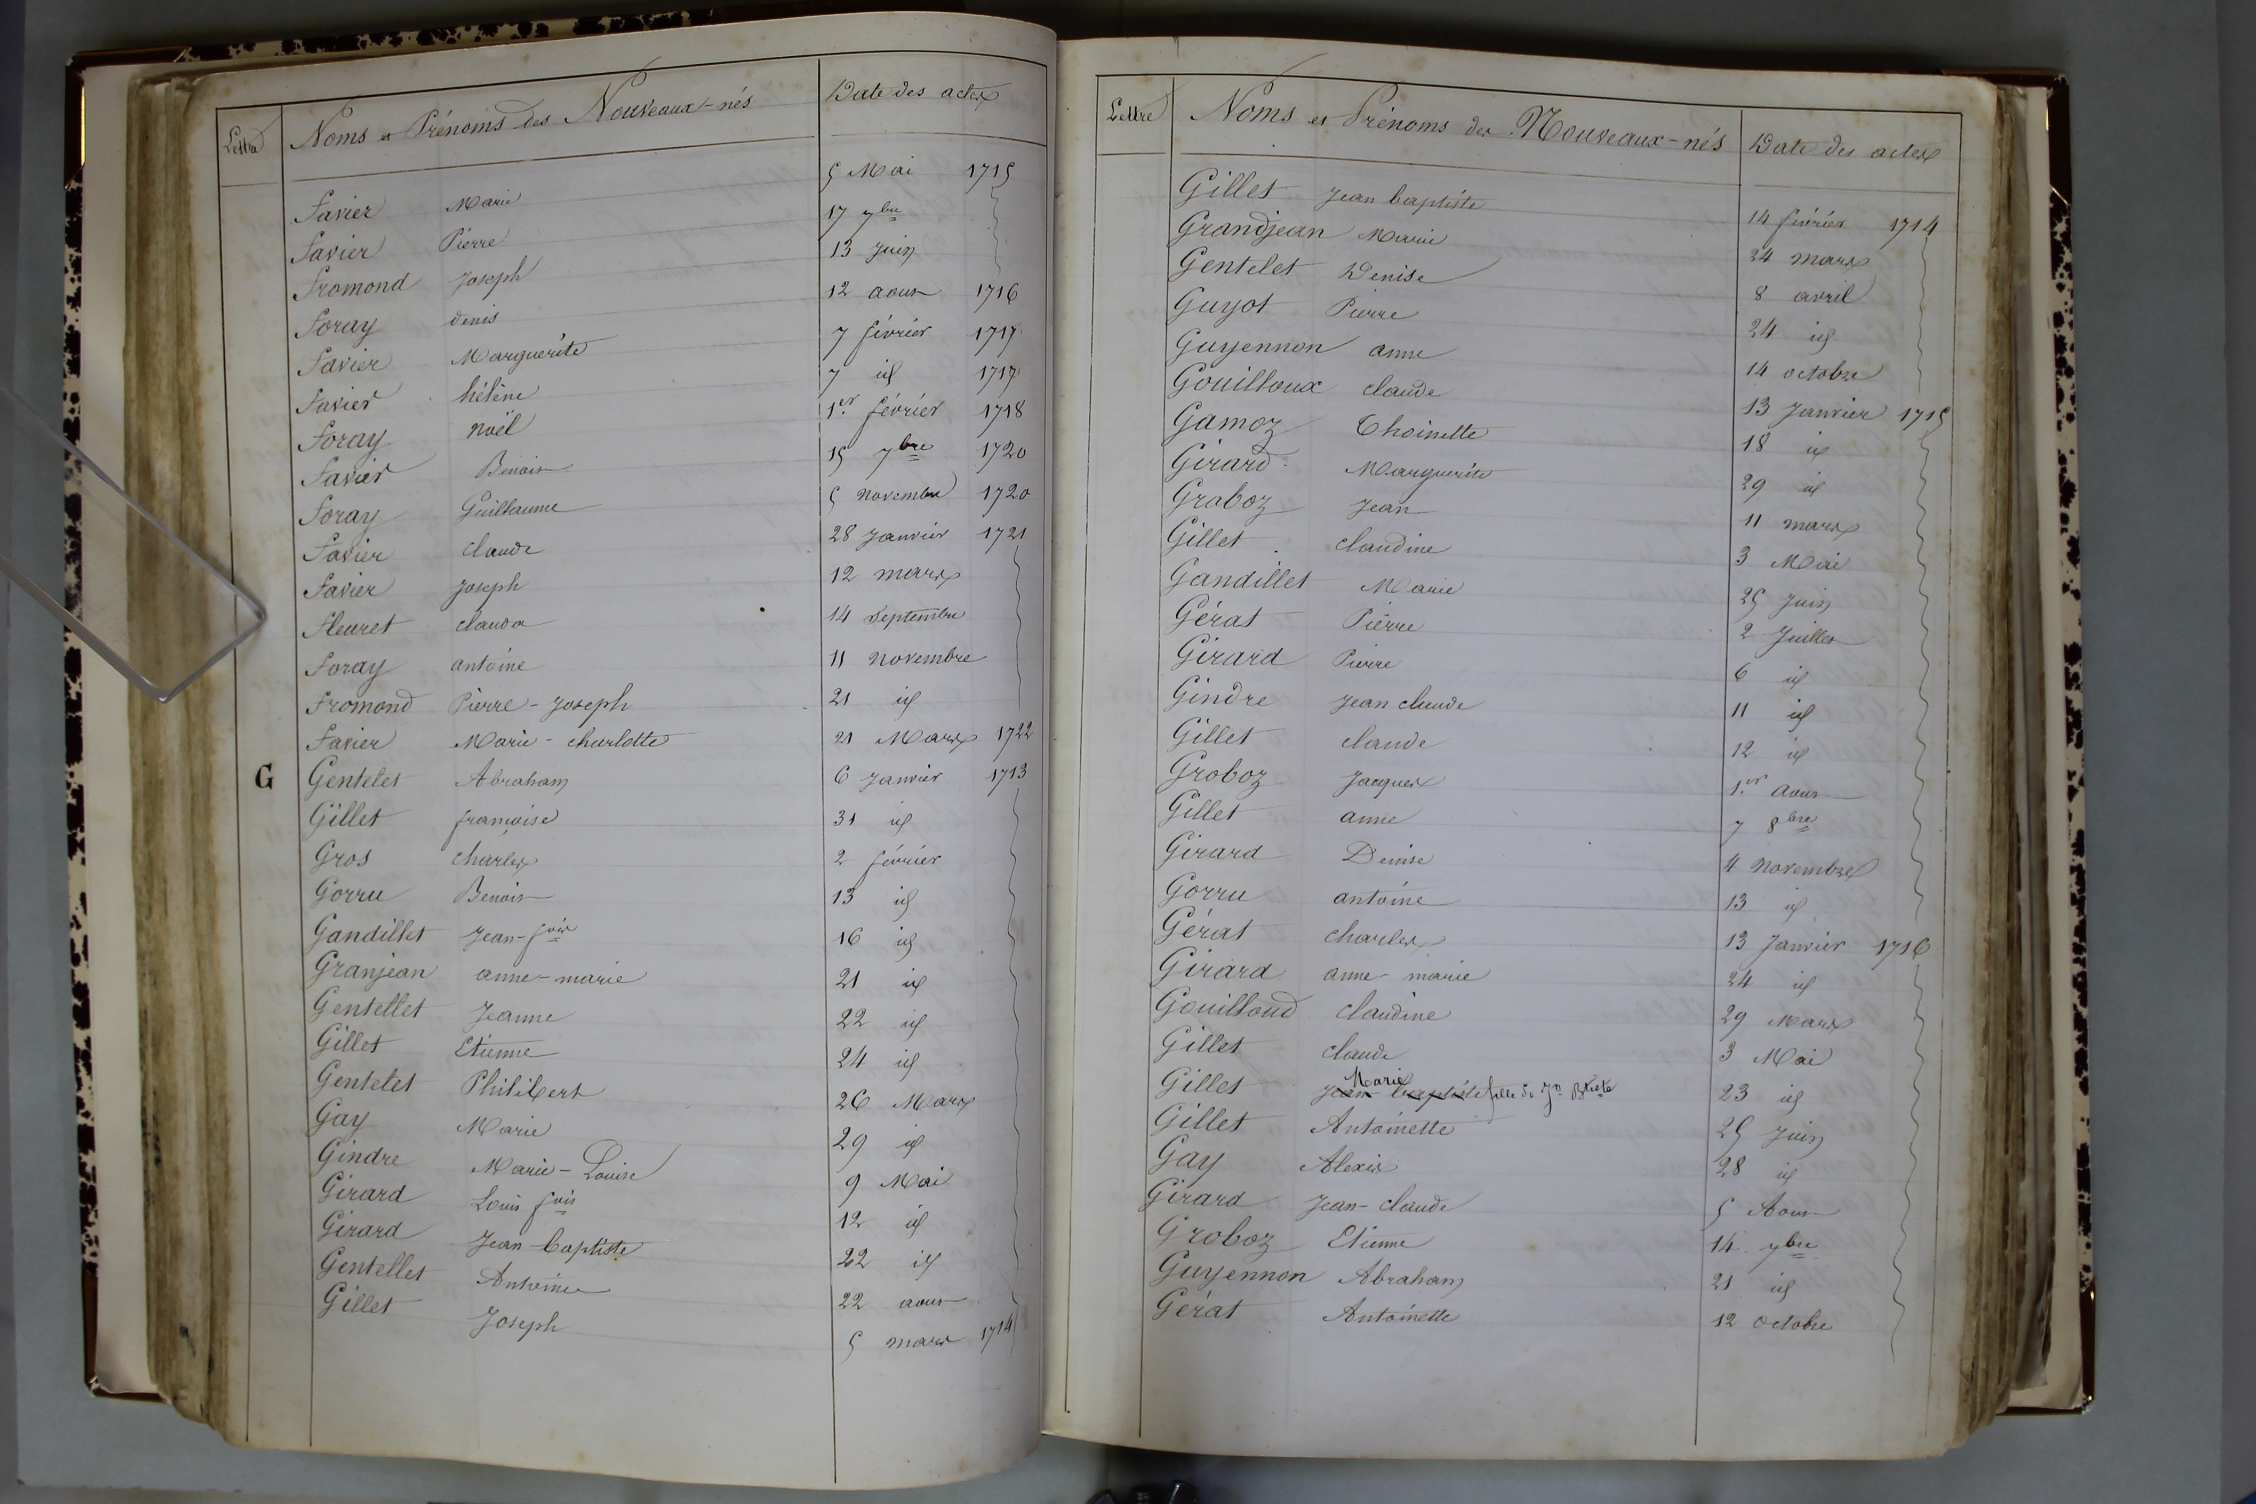 Lettre Noms et Prénoms des Nouveaux-nés Date des actes
Favier Marie 5 Mai 1715
Favier Pierre 17 7bre
Fromond Joseph 13 Juin
Foray denis 12 aout 1716
Favier Marguerite 7 février 1717
Favier hélène 7 id 1717
Foray noël 1er février 1718
Favier Benoit 15 7bre 1720
Foray Guillaume 5 novembre 1720
Favier claude 28 Janvier 1721
Favier Joseph 12 mars
Fleuret claude 14 Septembre
Foray antoine 11 novembre
Fromond Pierre-Joseph 21 id
Favier Marie-charlotte 21 Mars 1722
G Gentelet Abraham 6 Janvier 1713
Gillet françoise 31 id
Gros charles 2 février
Gorru Benoit 13 id
Gandillet Jean-fois 16 id
Granjean anne-marie 21 id
Gentellet Jeanne 22 id
Gillet Etienne 24 id
Gentelet Philibert 26 Mars
Gay Marie 29 id
Gindre Marie-Louise 9 Mai
Girard Louis fois 12 id
Girard Jean-baptiste 22 id
Gentellet Antoine 22 aout
Gillet Joseph 5 mars 1714
Lettre Noms et Prénoms des Nouveaux-nés Date des actes
Gillet Jean baptiste 14 février 1714
Grandjean Marie 24 mars
Gentelet Denise 8 avril
Guyot Pierre 24 id
Guyennon anne 14 octobre
Gouilloux claude 13 Janvier 1715
Gamoz Thoinette 18 id
Girard Marguerite 29 id
Groboz Jean 11 mars
Gillet claudine 3 Mai
Gandillet Marie 25 Juin
Gérat Pierre 2 Juillet
Girard Pierre 6 id
Gindre Jean claude 11 id
Gillet claude 12 id
Groboz Jacques 1er aout
Gillet anne 7 8bre
Girard Denise 4 novembre
Gorru antoine 13 id
Gérat charles 13 Janvier 1716
Girard anne-marie 24 id
Gouilloud claudine 29 Mars
Gillet claude 3 Mai
Marie
Gillet Jean baptiste fille de Jn Btiste 23 id
Gillet Antoinette 25 Juin
Gay Alexis 28 id
Girard Jean-claude 5 Aout
Groboz Etienne 14 7bre
Guyennon Abraham 21 id
Gérat Antoinette 12 octobre